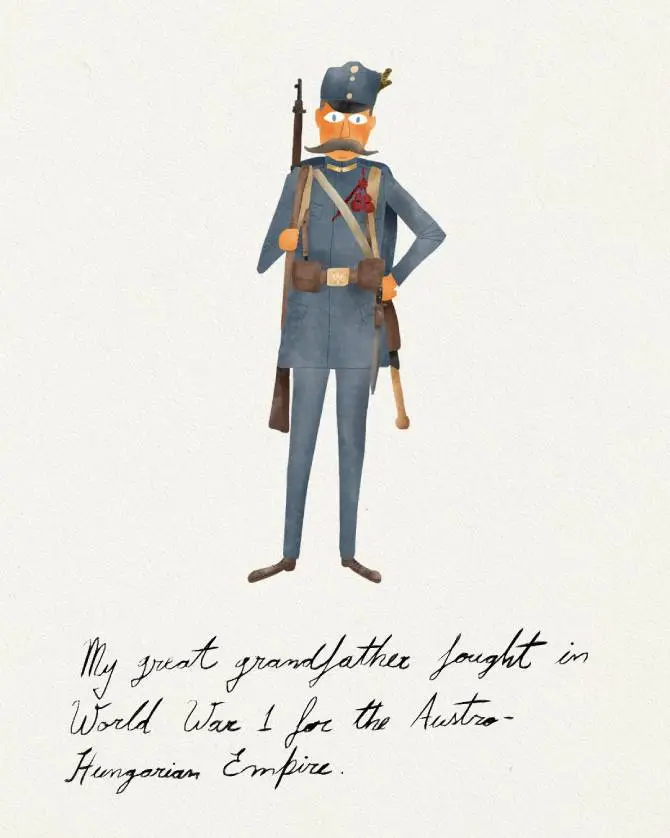 My great grandfather fought in
World War 1 for the Austro-
Hungarian Empire.